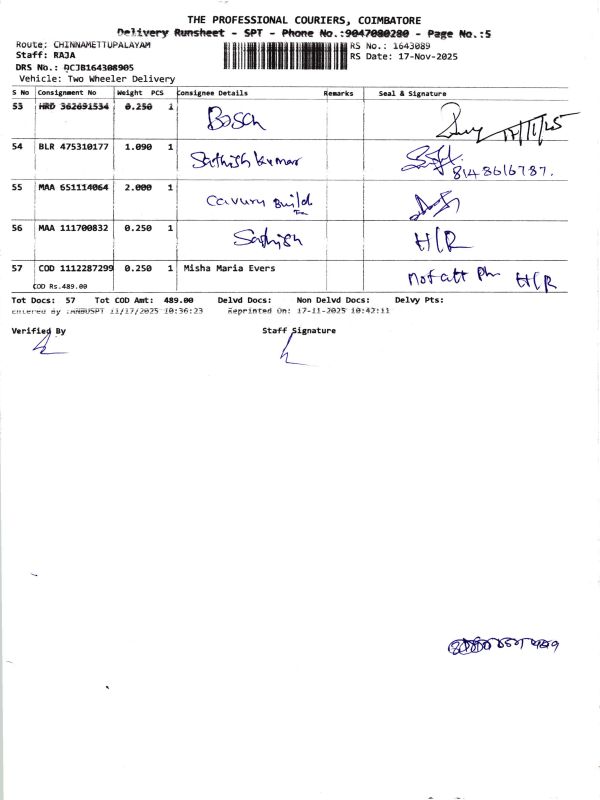 THE PROFESSIONAL COURIERS, COIMBATORE
Delivery Runsheet - SPT - Phone No.:9047080280 - Page No.:5
Route: CHINNAMETTUPALAYAM RS No.: 1643089
Staff: RAJA RS Date: 17-Nov-2025
DRS No.: DCJB164308905
Vehicle: Two Wheeler Delivery
S No Consignment No Weight PCS Consignee Details Remarks Seal & Signature
53 HRD 362691534 0.250 1 Bosch 17/11/25
54 BLR 475310177 1.090 1 Sathish kumar
8148616787.
55 MAA 651114064 2.000 1 Cavuru Build
56 MAA 111700832 0.250 1 Sathish H/R
57 COD 1112287299 0.250 1 Misha Maria Evers Not att Ph H/R
COD Rs.489.00
Tot Docs: 57 Tot COD Amt: 489.00 Delvd Docs: Non Delvd Docs: Delvy Pts:
Entered By :ANBUSPT 11/17/2025 10:36:23 Reprinted On: 17-11-2025 10:42:11
Verified By Staff Signature